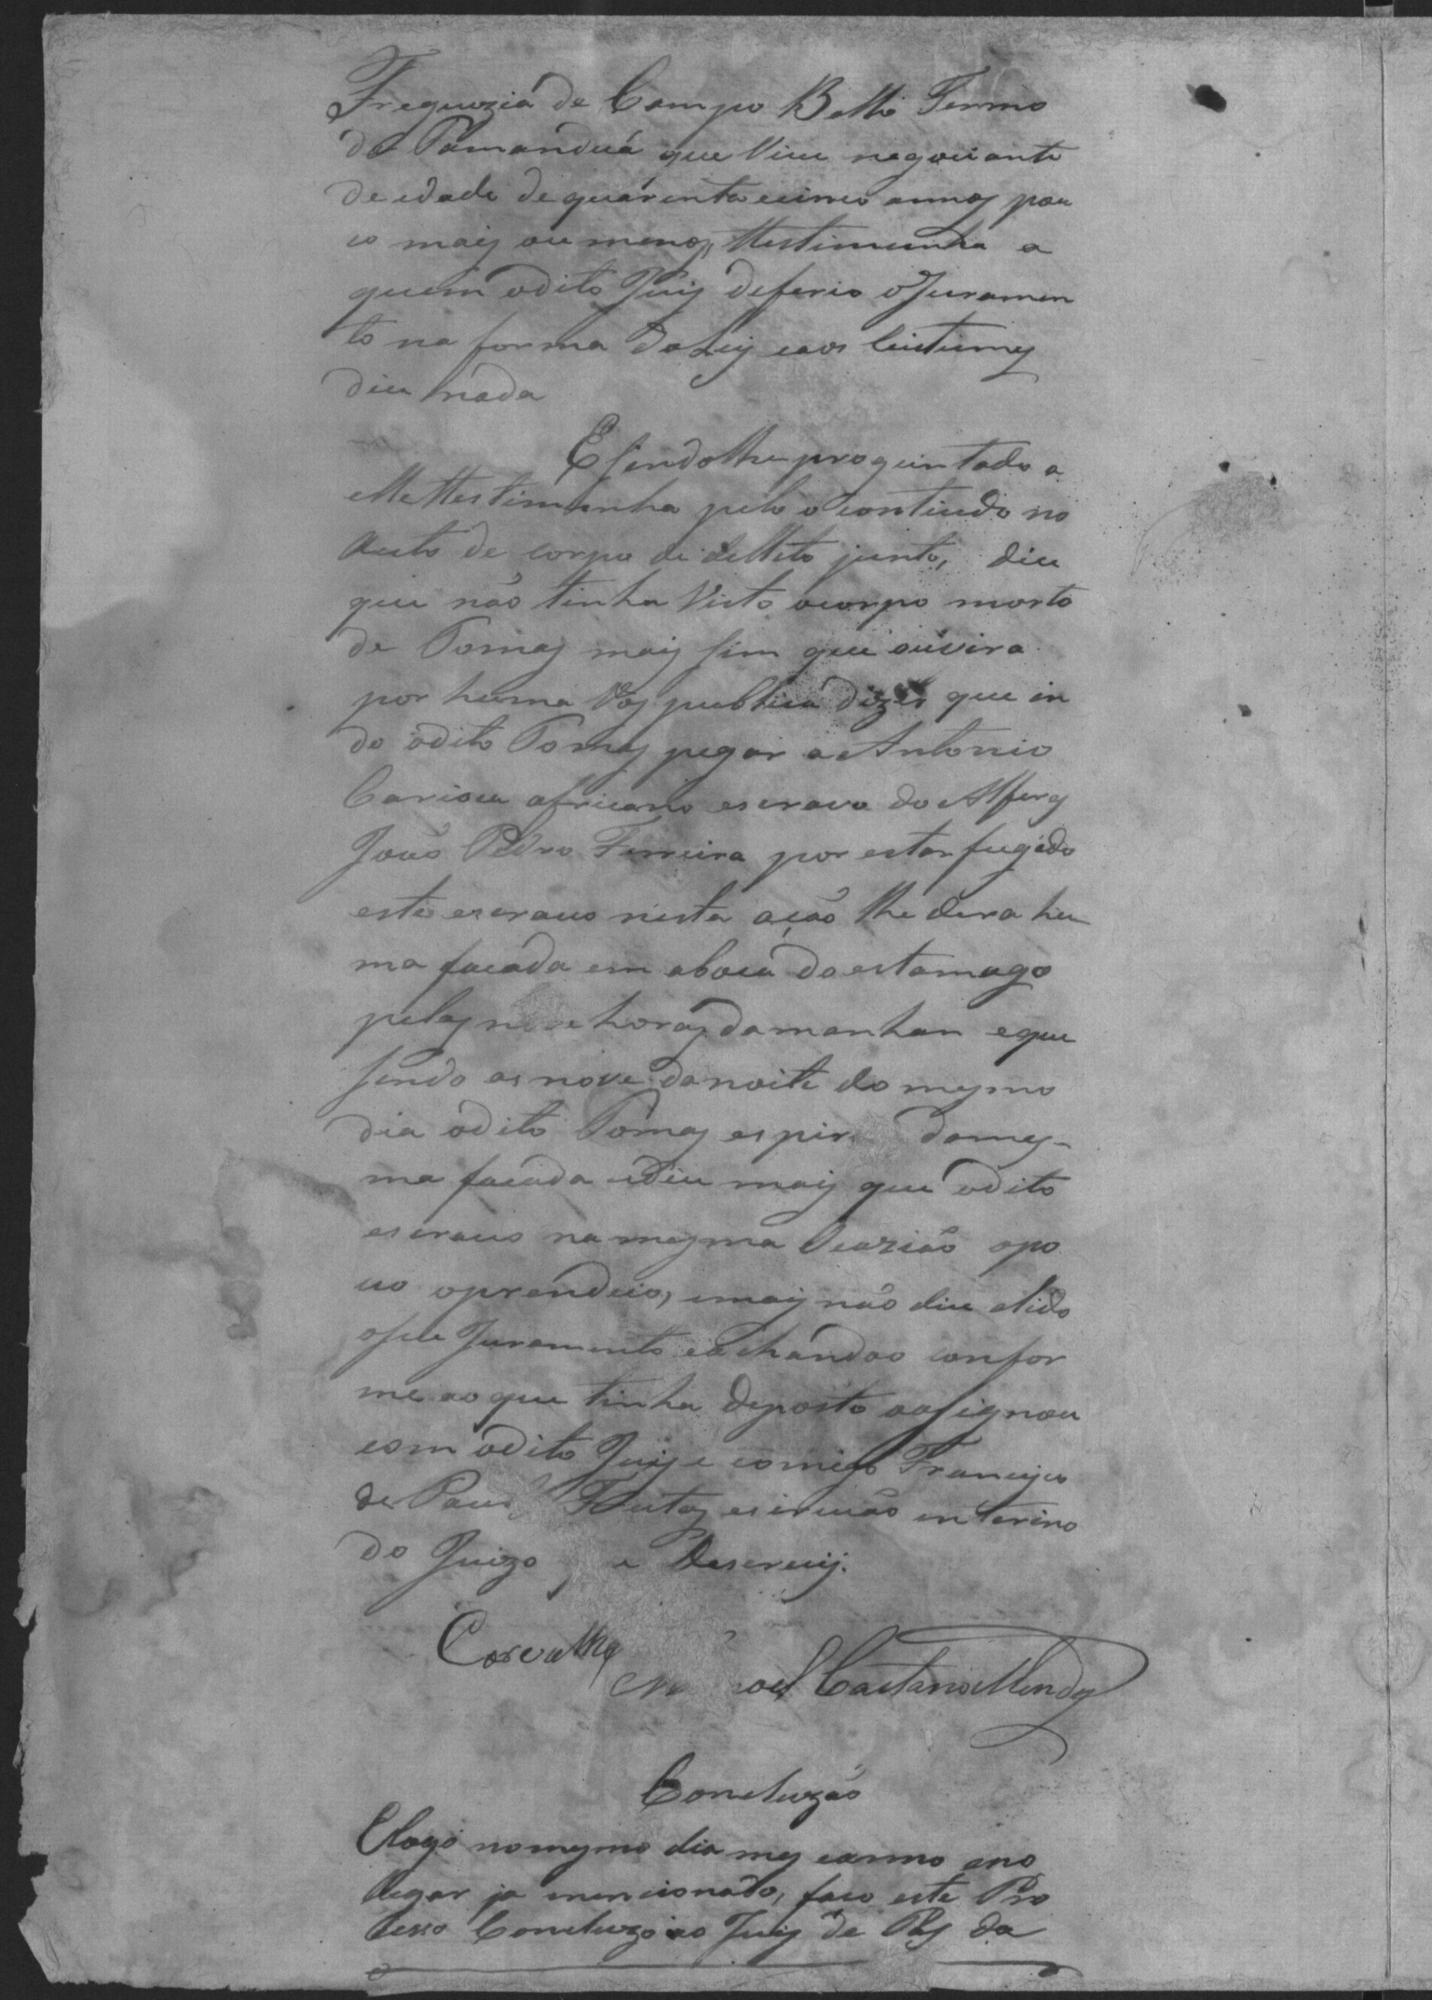 Freguezia de Campo Bello Termo
de Tamanduá que Vive negociante
de idade de quarenta e cinco annos pou
co mais ou menos, ttestimunha a
quem o dito Juis deferio o Juramen
to na forma da Ley e aos Custumes
dice nada
E sendo lhe proguintado a
elle ttestimunha pelo o contiudo no
Auto de corpo de dellito junto, dice
que não tinha Visto o corpo morto
de Tomas mais sim que ouvira
por huma Vos publica dizer que in
do o dito Tomas pegar a Antonio
Carioca africano escravo do Alferes
João Pedro Ferreira por estar fugido
este escravo nesta ação lhe dera hu
ma facada em a boca do estamago
pelas nove horas da manhan e que
sendo as nove da noite do mesmo
dia o dito Tomas espir da mes-
ma facada e dice mais que o dito
escravo na mesma Ocazião o po
vo o prendeio, e mais não dice e lido
o seu Juramento e achando o confor
me ao que tinha deposto o assignou
com o dito Juis e comigo Francisco
de Paula Freitas escrivão enterino
do Juizo que o escrevij.
Carvalho
Manoel Caetano Mendes
Concluzão
E logo no mesmo dia mes e anno e no
lugar ja mencionado, faco este Pro
cesso Concluzo ao Juis de Pas da